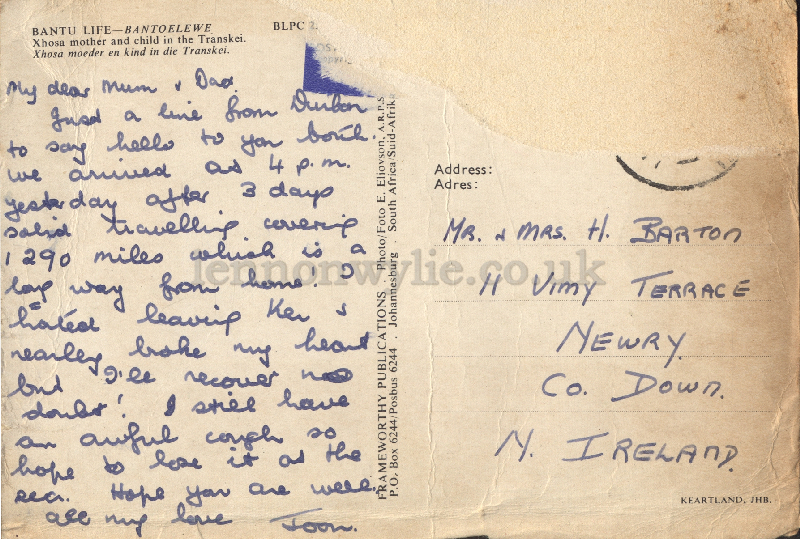 BANTU LIFE—BANTOELEWE
Xhosa mother and child in the Transkei.
Xhosa moeder en kind in die Transkei.
BLPC 2.
My dear Mum & Dad.
Just a line from Durban
to say hello to you both.
we arrived at 4 p.m.
yesterday after 3 days
solid travelling covering
1290 miles which is a
long way from home! I
hated leaving Ken &
nearley broke my heart
but I'll recover no
doubt! I still have
an awful cough so
hope to lose it at the
sea. Hope you are well.
all my love Joan.
FRAMEWORTHY PUBLICATIONS · Photo/Foto E. Eliovson, A.R.P.S.
P.O. Box 6244/Posbus 6244 . Johannesburg . South Africa/Suid-Afrika
Address:
Adres:
MR. & MRS. H. BARTON
11 VIMY TERRACE
NEWRY.
CO. DOWN.
N. IRELAND.
KEARTLAND, JHB.
lennonwylie.co.uk